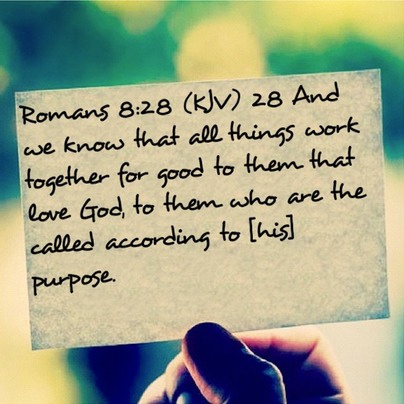 Romans 8:28 (KJV) 28 And
we know that all things work
together for good to them that
love God, to them who are the
called according to [his]
purpose.